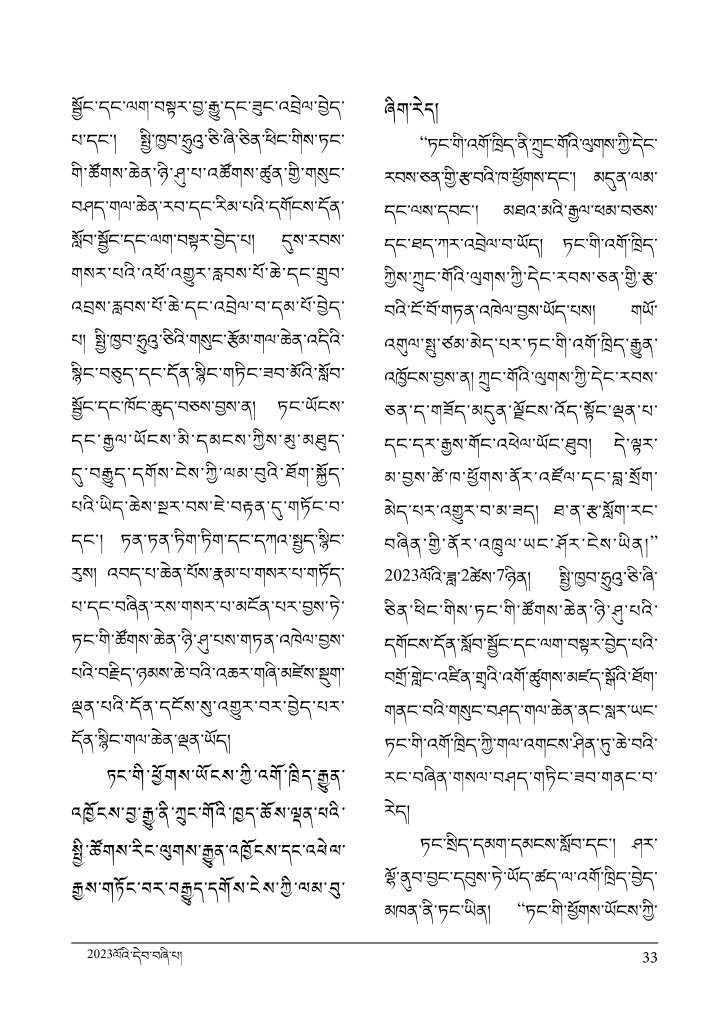 སྦྱོང་དང་ལག་བསྟར་བྱ་རྒྱུ་དང་ཟུང་འབྲེལ་བྱེད་
པ་དང་། སྤྱི་ཁྱབ་ཧྲུའུ་ཅི་ཞི་ཅིན་ཕིང་གིས་ཏང་
གི་ཚོགས་ཆེན་ཉི་ཤུ་པ་འཚོགས་ཚུན་གྱི་གསུང་
བཤད་གལ་ཆེན་རབ་དང་རིམ་པའི་དགོངས་དོན་
སློབ་སྦྱོང་དང་ལག་བསྟར་བྱེད་པ། དུས་རབས་
གསར་པའི་འཕོ་འགྱུར་རླབས་པོ་ཆེ་དང་གྲུབ་
འབྲས་རླབས་པོ་ཆེ་དང་འབྲེལ་བ་དམ་པོ་བྱེད་
པ། སྤྱི་ཁྱབ་ཧྲུའུ་ཅིའི་གསུང་རྩོམ་གལ་ཆེན་འདིའི་
སྙིང་བཅུད་དང་དོན་སྙིང་གཏིང་ཟབ་མོའི་སློབ་
སྦྱོང་དང་ཁོང་ཆུད་བཅས་བྱས་ན། ཏང་ཡོངས་
དང་རྒྱལ་ཡོངས་མི་དམངས་ཀྱིས་མུ་མཐུད་
དུ་བརྒྱུད་དགོས་ངེས་ཀྱི་ལམ་བུའི་ཐོག་སྐྱོད་
པའི་ཡིད་ཆེས་སྔར་བས་ཇེ་བརྟན་དུ་གཏོང་བ་
དང་། ཏན་ཏན་ཏིག་ཏིག་དང་དཀའ་སྤྱད་སྙིང་
རུས། འབད་པ་ཆེན་པོས་རྣམ་པ་གསར་པ་གཏོད་
པ་དང་བཞིན་རས་གསར་པ་མངོན་པར་བྱས་ཏེ་
ཏང་གི་ཚོགས་ཆེན་ཉི་ཤུ་པས་གཏན་འཁེལ་བྱས་
པའི་བརྗིད་ཉམས་ཆེ་བའི་འཆར་གཞི་མཛེས་སྡུག་
ལྡན་པའི་དོན་དངོས་སུ་འགྱུར་བར་བྱེད་པར་
དོན་སྙིང་གལ་ཆེན་ལྡན་ཡོད།
ཏང་གི་ཕྱོགས་ཡོངས་ཀྱི་འགོ་ཁྲིད་རྒྱུན་
འཁྱོངས་བྱ་རྒྱུ་ནི་ཀྲུང་གོའི་ཁྱད་ཆོས་ལྡན་པའི་
སྤྱི་ཚོགས་རིང་ལུགས་རྒྱུན་འཁྱོངས་དང་འཕེལ་
རྒྱས་གཏོང་བར་བརྒྱུད་དགོས་ངེས་ཀྱི་ལམ་བུ་
ཞིག་རེད།
“ཏང་གི་འགོ་ཁྲིད་ནི་ཀྲུང་གོའི་ལུགས་ཀྱི་དེང་
རབས་ཅན་གྱི་རྩ་བའི་ཁ་ཕྱོགས་དང་། མདུན་ལམ་
དང་ལས་དབང་། མཐའ་མའི་རྒྱལ་ཕམ་བཅས་
དང་ཐད་ཀར་འབྲེལ་བ་ཡོད། ཏང་གི་འགོ་ཁྲིད་
ཀྱིས་ཀྲུང་གོའི་ལུགས་ཀྱི་དེང་རབས་ཅན་གྱི་རྩ་
བའི་ངོ་བོ་གཏན་འཁེལ་བྱས་ཡོད་པས། གཡོ་
འགུལ་སྤུ་ཙམ་མེད་པར་ཏང་གི་འགོ་ཁྲིད་རྒྱུན་
འཁྱོངས་བྱས་ན། ཀྲུང་གོའི་ལུགས་ཀྱི་དེང་རབས་
ཅན་ད་གཟོད་མདུན་ལྗོངས་འོད་སྟོང་ལྡན་པ་
དང་དར་རྒྱས་གོང་འཕེལ་ཡོང་ཐུབ། དེ་ལྟར་
མ་བྱས་ཚེ་ཁ་ཕྱོགས་ནོར་འཛོལ་དང་བླ་སྲོག་
མེད་པར་འགྱུར་བ་མ་ཟད། ཐ་ན་རྩ་སློག་རང་
བཞིན་གྱི་ནོར་འཁྲུལ་ཡང་ཤོར་ངེས་ཡིན།”
2023ལོའི་ཟླ་2ཚེས་7ཉིན། སྤྱི་ཁྱབ་ཧྲུའུ་ཅི་ཞི་
ཅིན་ཕིང་གིས་ཏང་གི་ཚོགས་ཆེན་ཉི་ཤུ་པའི་
དགོངས་དོན་སློབ་སྦྱོང་དང་ལག་བསྟར་བྱེད་པའི་
བགྲོ་གླེང་འཛིན་གྲྭའི་འགོ་ཚུགས་མཛད་སྒོའི་ཐོག་
གནང་བའི་གསུང་བཤད་གལ་ཆེན་ནང་སླར་ཡང་
ཏང་གི་འགོ་ཁྲིད་ཀྱི་གལ་འགངས་ཤིན་ཏུ་ཆེ་བའི་
རང་བཞིན་གསལ་བཤད་གཏིང་ཟབ་གནང་བ་
རེད།
ཏང་སྲིད་དམག་དམངས་སློབ་དང་། ཤར་
ལྷོ་ནུབ་བྱང་དབུས་ཏེ་ཡོད་ཚད་ལ་འགོ་ཁྲིད་བྱེད་
མཁན་ནི་ཏང་ཡིན། “ཏང་གི་ཕྱོགས་ཡོངས་ཀྱི་
2023ལོའི་དེབ་བཞི་པ།
33